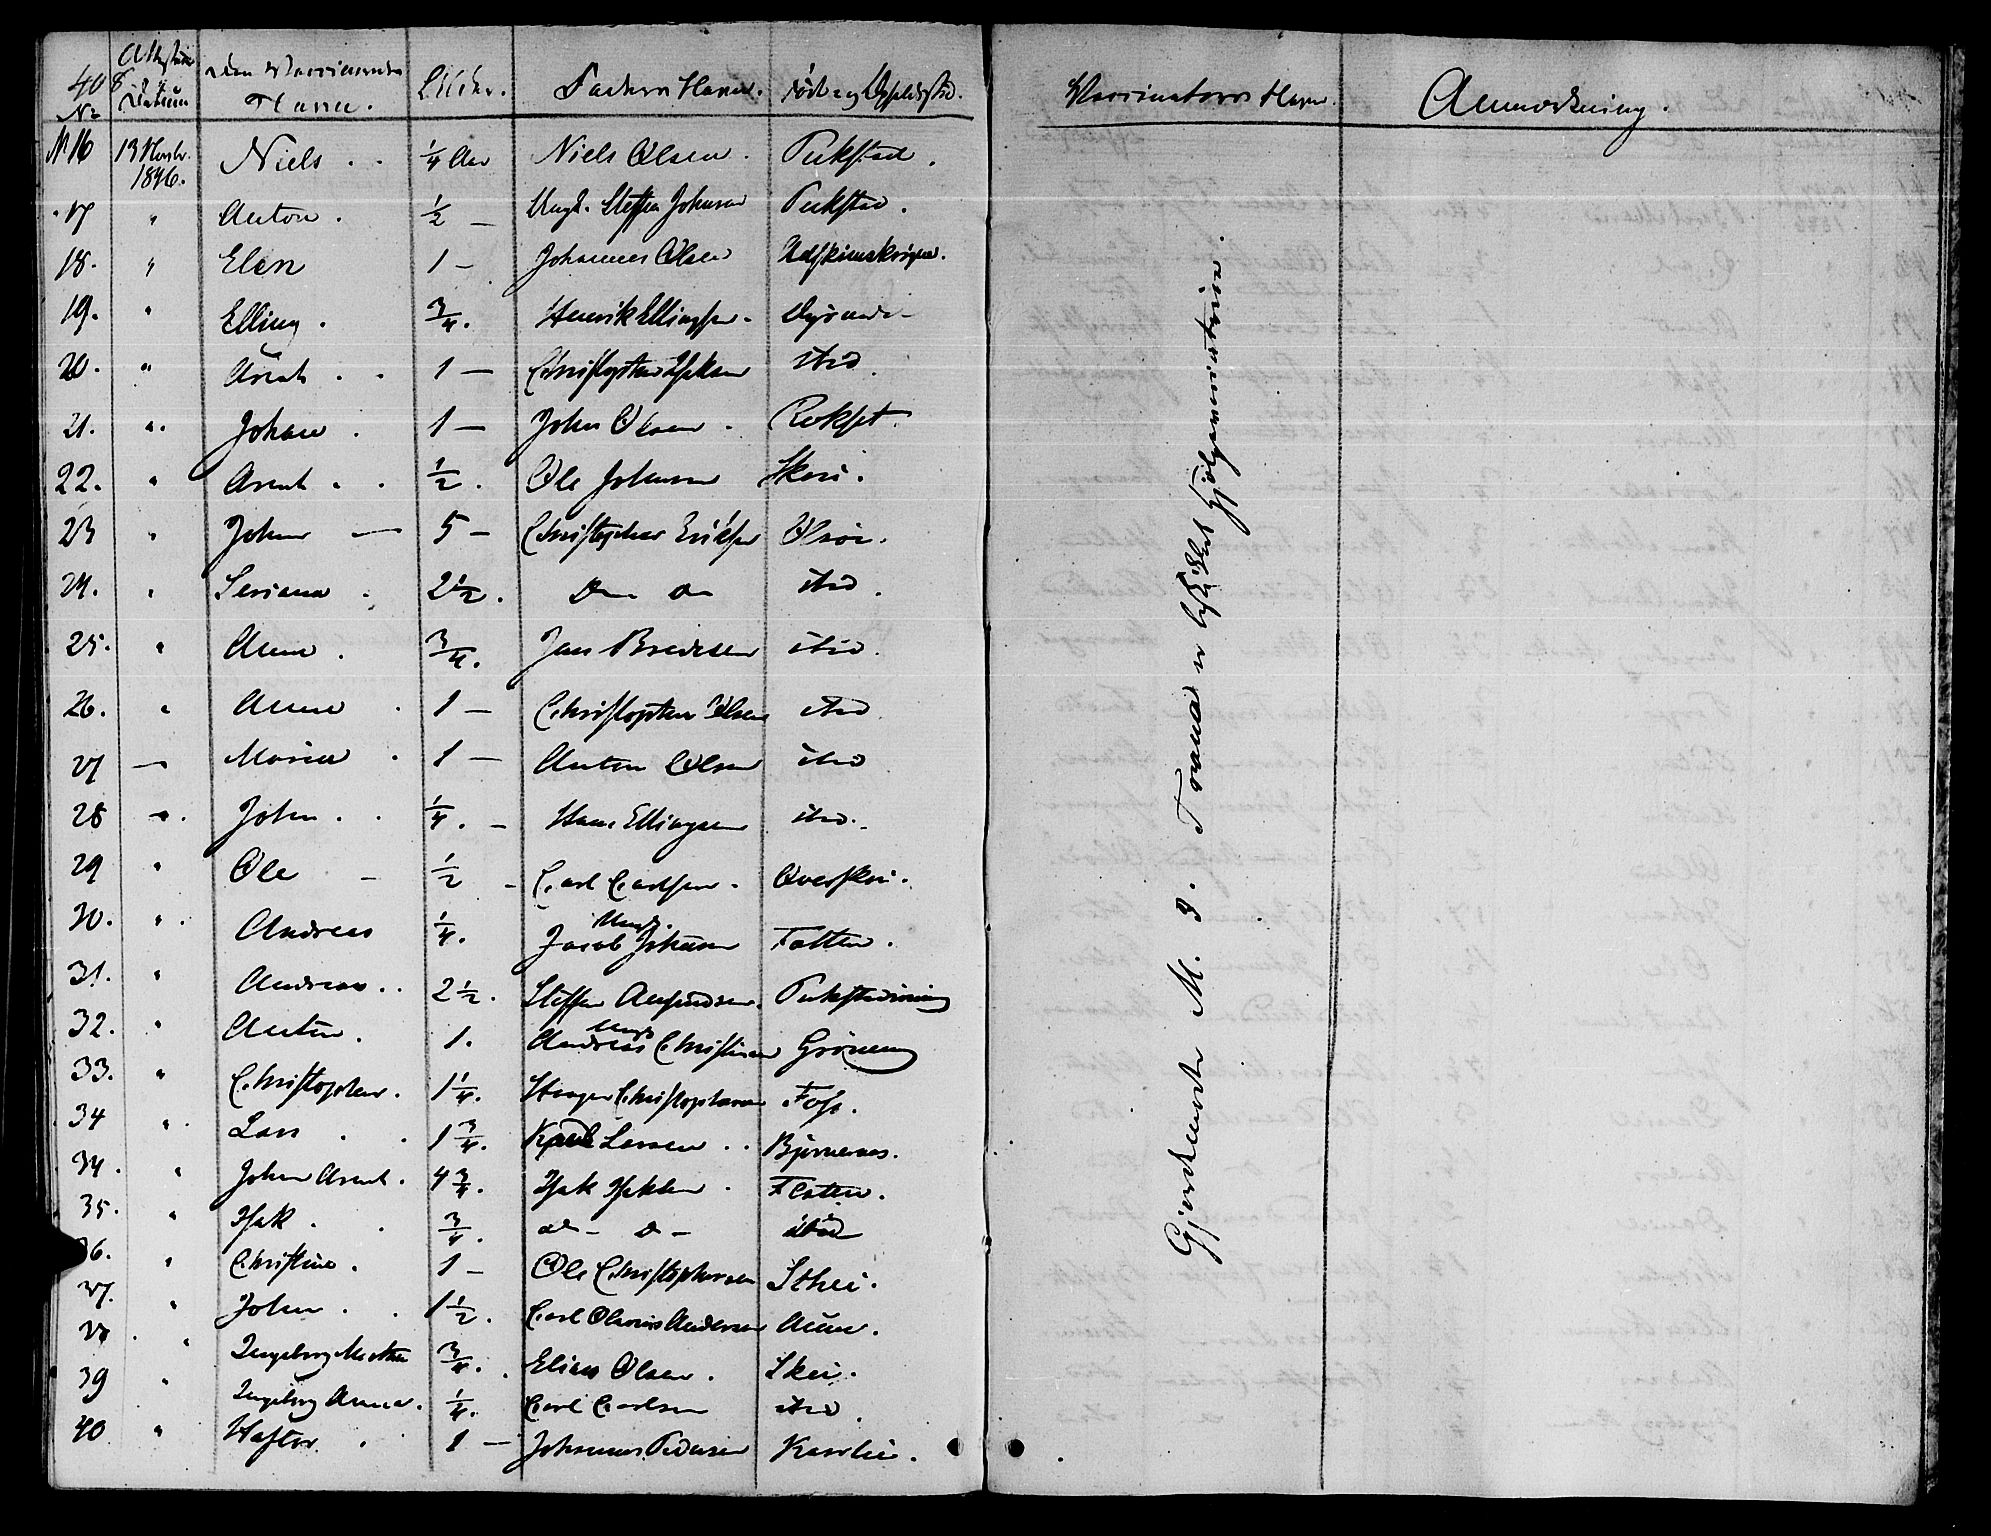 408
No Datum Navn. Alder. Faderens Navn. Vaccinateurs Navn. Anmærkning.
No 16 13 Novbr. 1846. Niels . . 1/4 Aar Niels Olsen . Pukstad .
17 " Anton . 1/2 — Ungk. Steffen Johnsen Pukstad .
18. " Elen 1 — Johannes Olsen
19. " Elling . 3/4 . Henrik Ellingsen
20. " Arent . . 1 — Christopher Isaksen ibid .
21. " Johan . 1 — John Olsen . Rokset .
22. " Arent . . 1/2 . Ole Johnsen Skei .
23 " John — 5 — Christopher Eriksen Olsøi .
24. " Seriana . 2 1/2 . D— D— ibid .
25. " Anne . 3/4 . Jens Bredesen ibid .
26. " Anne . 1 — Christopher Olsen ibid
27 — Maria . 1 — Anton Olsen ibid
28 " John . . 1/4 . — Hans Ellingsen ibid .
29 " Ole — 1/2 — Carl Carlsen . Overskei .
30. " Andreas 1/4 . Ungk. Jacob Johnsen Fatten .
31. " Andreas . . 2 1/2 . Steffen Amundsen .
32. " Anton . 1 . Ungk Andreas Christiansen Grøneng
33. " Christopher . 1 1/4 . Christophersen Foss .
34 " Lars . . 1 3/4 . Larsen . . Bjørnenes .
34 . " Johan Arent . 4 3/4 . Isak Isaksen . Flatten .
35. " Isak . . 3/4 . D— D— ibid
36. " Christine . 1 — Ole Christophersen Sthei .
37. " John . . 1 1/2 . Carl Olaves Andersen Aune .
38 . " Ingeborg Martha 3/4 . . Elias Olsen . Skei .
39 " Ingeborg Anna . 1/4 . Carl Carlsen ibid .
40 " Haftor . 1 — Johannes Pedersen Kavlie .